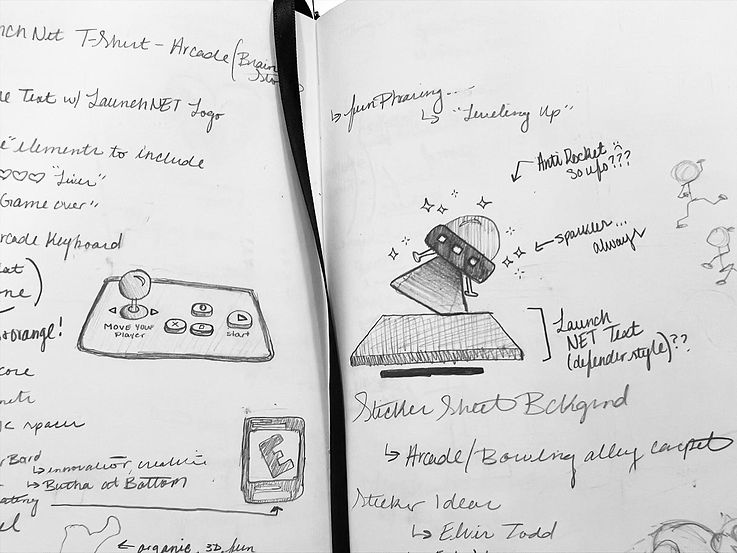 Net T-Shirt - Arcade (Brain
Text w/ LaunchNET Logo
elements to include
♡♡♡ "Lives"
Game over"
Arcade Keyboard
orange!
MOVE YOUR
Player
X
D
start
space
↳ innovation, creative
↳ at Bottom
E
← organic, 3D, fun
↳ fun Phrasing...
↳ "Leveling Up"
Anti Rocket :(
so ufo???
sparkles...
always
Launch
NET Text
(defender style)??
Sticker Sheet Bckgrnd
↳ Arcade/Bowling alley carpet
Sticker Ideas
↳ Elvir Todd